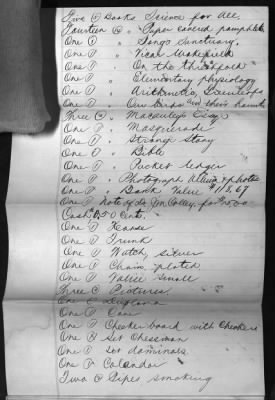 Five (5) Books Science for All.
Fourteen (14) " Paper covered pamphlets
One (1) " Songs Sanctuary.
One (1) " Vicar Wakefield
One (1) " On the
One (1) " Elementary physiology
One (1) " Arithmetic,
One (1) " Our and their haunts
Three (3) " Macauley's Essays
One (1) " Masquerade
One (1) " Strange Story
One (1) " Bible
One (1) " Pocket Ledger
One (1) " Photograph Album & photos
One (1) " Bank. Value $113.69
One (1) Note of Colley. for
Cash 50 Cents.
One (1)
One (1) Trunk
One (1) Watch, silver
One (1) Chain, plated
One (1) Valise small
Three (3) Pictures
One (1) Diploma
One (1) Cane
One (1) Checker board with Checkers
One (1) Set Chessman
One (1) Set dominoes
One (1) Calendar
Two (2) Pipes, smoking